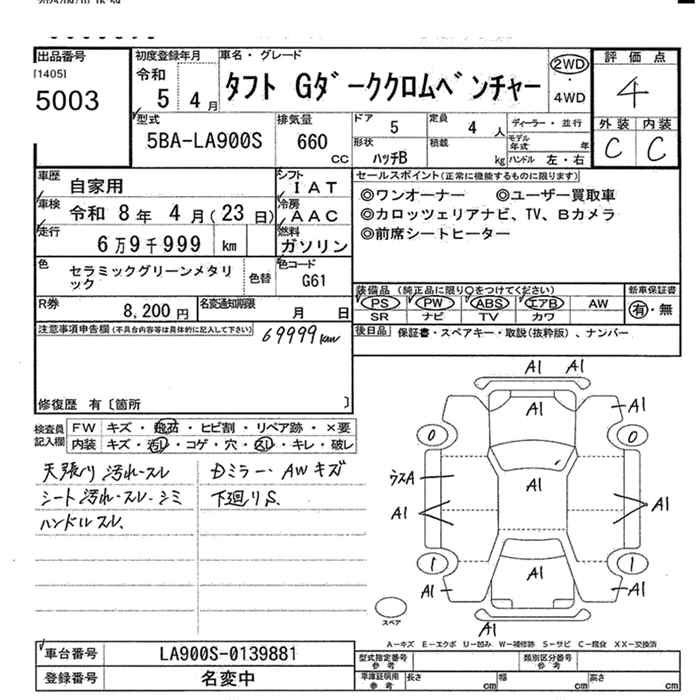 出品番号
[1405]
5003
初度登録年月
令和
5 4 月
車名・グレード
タフト Gダーククロムベンチャー
2WD
・
4WD
評価点
4
外装 内装
C C
型式
5BA-LA900S
排気量
660
cc
ドア
5
形状
ハッチB
定員
4 人
積載
kg
ディーラー・並行
モデル年式 年
ハンドル 左・右
車歴
自家用
車検 令和 8 年 4 月(23 日)
走行 6万9千999 km
シフト
IAT
冷房
AAC
燃料
ガソリン
色 セラミックグリーンメタリック
色替
色コード
G61
R券 8,200 円
名変通知期限
月 日
セールスポイント(正常に機能するものに限ります)
◎ワンオーナー ◎ユーザー買取車
◎カロッツェリアナビ、TV、Bカメラ
◎前席シートヒーター
装備品(純正品に限り○をつけてください)
PS PW ABS エアB AW
SR ナビ TV カワ
新車保証書
有・無
後日品 保証書・スペアキー・取説(抜粋版)、ナンバー
注意事項申告欄(不具合内容等は具体的に記入して下さい)
69999km
修復歴 有〔箇所 〕
検査員記入欄
FW キズ・飛石・ヒビ割・リペア跡・×要
内装 キズ・汚レ・コゲ・穴・スレ・キレ・破レ
天張り汚れ・スレ
シート汚れ・スレ・シミ
ハンドルスレ
Dミラー・AWキズ
下廻りS
A1 A1
A1 A1
0 0
ウスA
A1
A1
A1
1 1
A1
A1 A1
A1
スペア
A-キズ E-エクボ U-凹み W-補修跡 S-サビ C-腐食 XX-交換済
車台番号 LA900S-0139881
登録番号 名変中
型式指定番号
参考
類別区分番号
参考
車庫証明用
参考
長さ cm 幅 cm 高さ cm